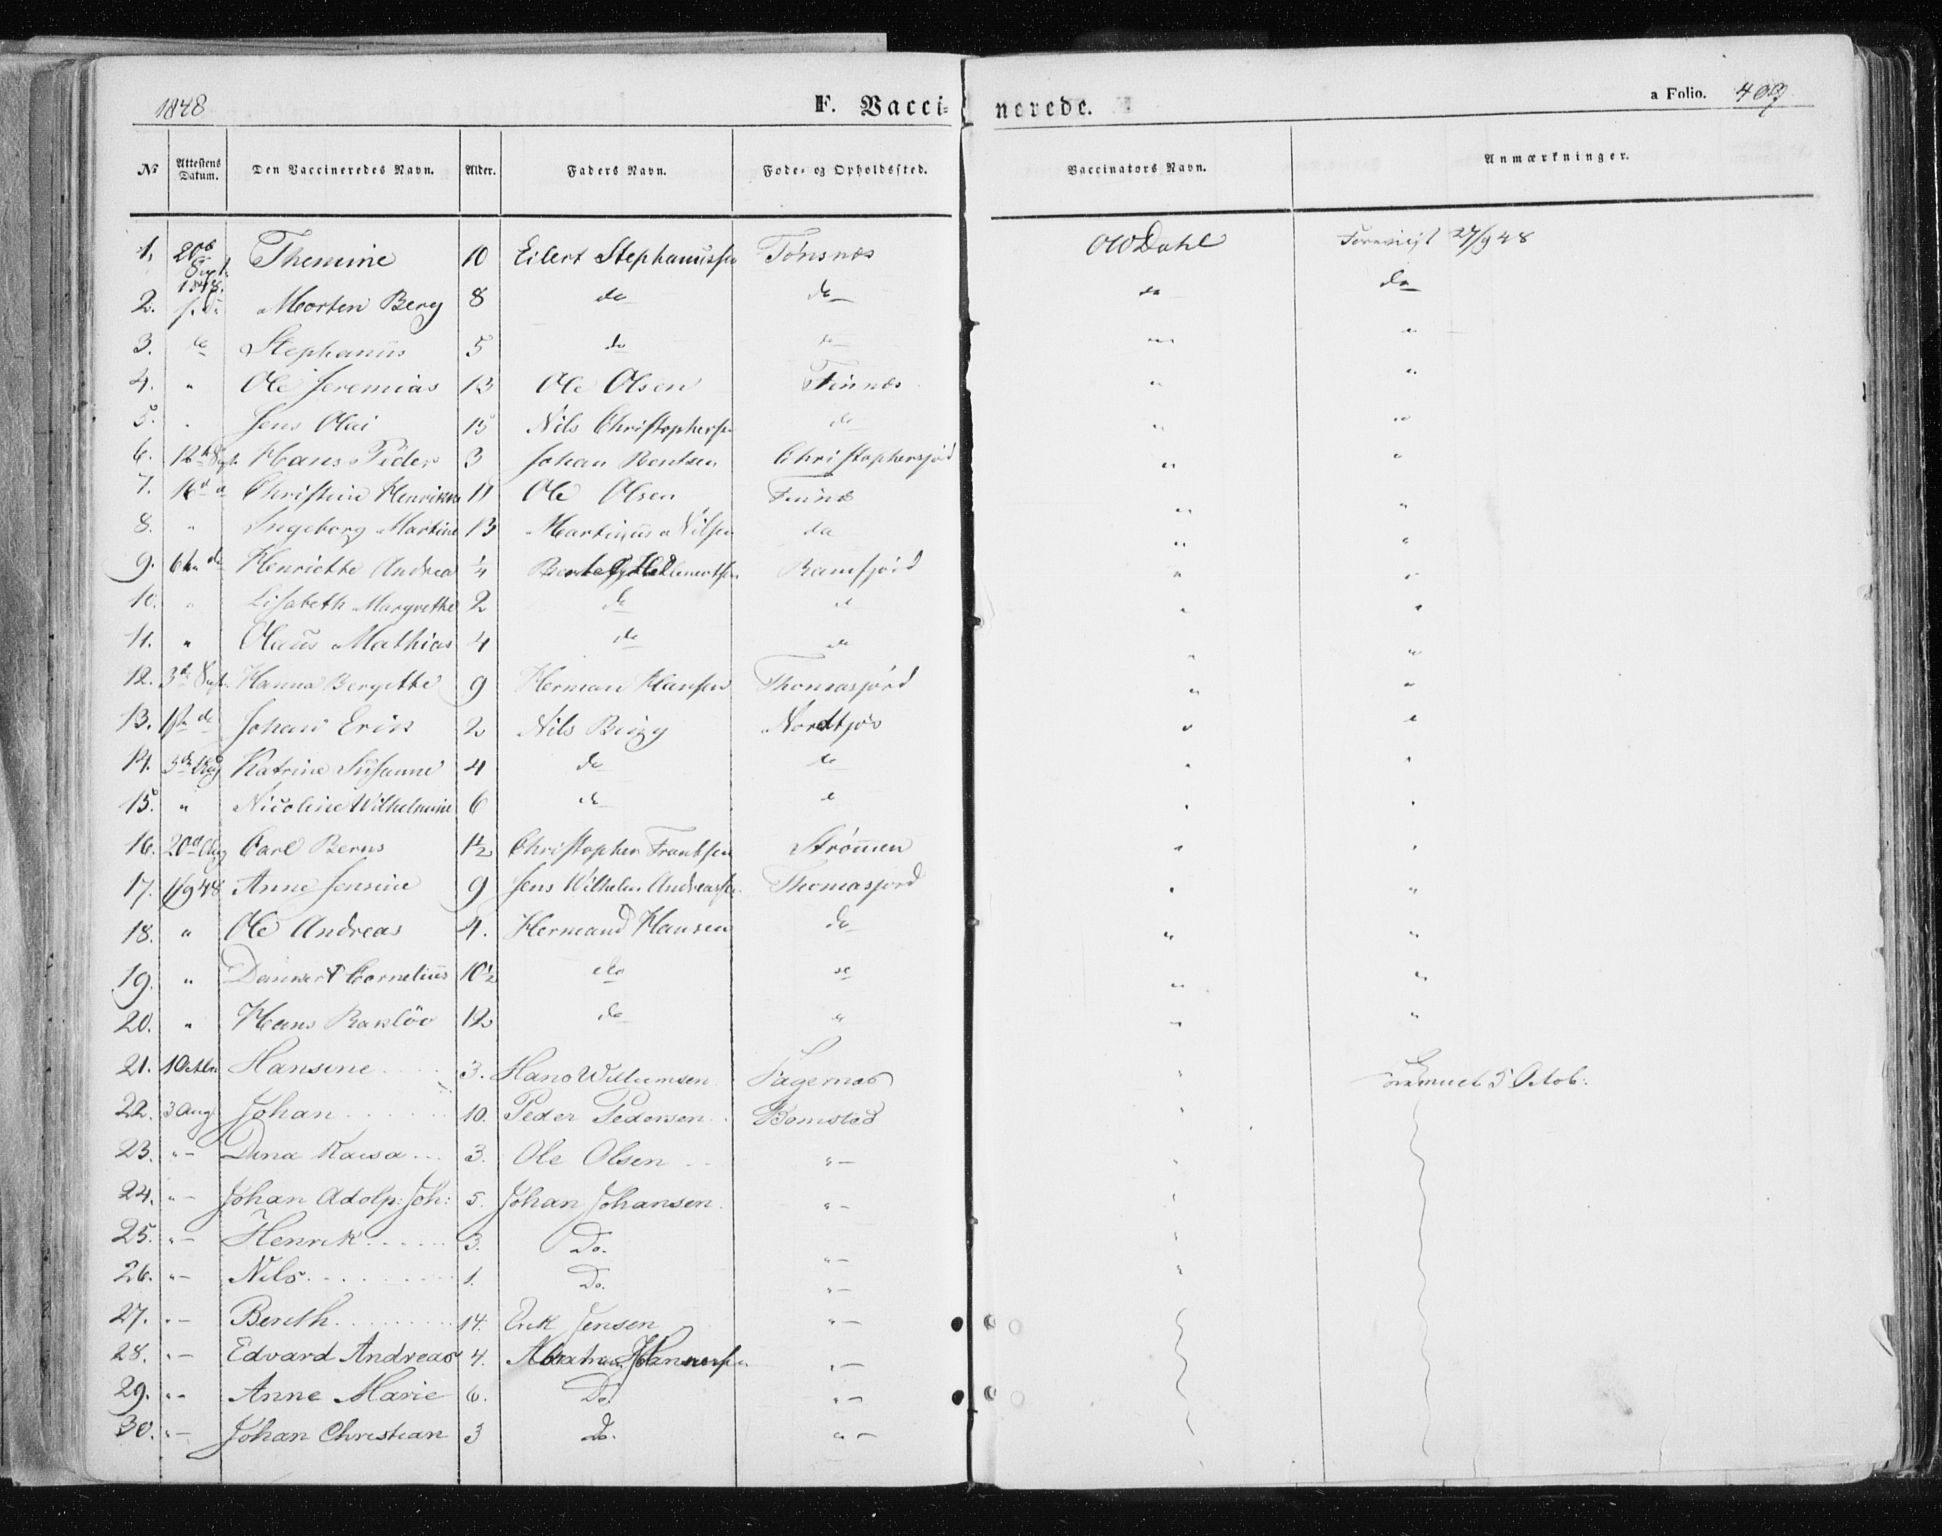 1848 F. Vaccinerede. a Folio. 409
No Attestens Datum. Den Vaccineredes Navn. Alder. Faders Navn. Føde- og Opholdssted. Vaccinators Navn. Anmærkninger.
1. 20de Sept. 1848. Themine 10 Eilert Stephanussen Tönsnæs OW Dahl Foreviist 27/9 48
2. do Morten Berg 8 do do do do
3. do Stephanus 5 do do " "
4. " Ole Jeremias 13 Ole Olsen Finnæs " "
5. " Jens Olai 15 Nils Christophersen do " "
6. 12te Sept. Hans Peder 3 Johan Bentsen Christophersjord " "
7. 16de do Christine Henrikke 11 Ole Olsen Finnæs " "
8. " Ingeborg Martine 13 Martinus Nilsen do " "
9. 6te do Henriette Andrea 1/4 Ramfjörd " "
10. " Lisabeth Margrethe 2 do do " "
11. " Olaus Mathias 4 do do " "
12. 3de Sept. Hanna Bergitte 9 Herman Hansen Thomasjörd " "
13. do Johan Erik 2 Nils Nordfjös " "
14. 3de Aug Katrine Susanne 4 do do " "
15. " Nicoline Wilhelmine 6 do do " "
16. 20de Aug Carl Berns 1 1/2 Christopher Frantsen Strömmen " "
17. 1/9 48 Anne Jensine 9 Jens Wilhelm Andreassen Thomasjord " "
18. " Ole Andreas 4. Hermand Hansen do " "
19. " Danwert Cornelius 10 1/2 do do " "
20. " Hans Raklöv 12 do " " "
21. 1 Octbr Hansine 3. Hans Willumsen Fagernæs " 5 Octob:
22. 3 Aug Johan 10. Peder Pedersen Bomstad "
23. "– Dina Kaisa 3. Ole Olsen "– "
24. "– Johan Adolp: Joh: 5. Johan Johansen "– "
25. "– Henrik 3. Do. "– "
26. "– Nils 1. Do. "– "
27. "– Berith 14. Erik Jensen "–
28. "– Edvard Andreas 4. "–
29. "– Anne Marie 6. Do. "–
30. "– Johan Christian 3 Do. "–